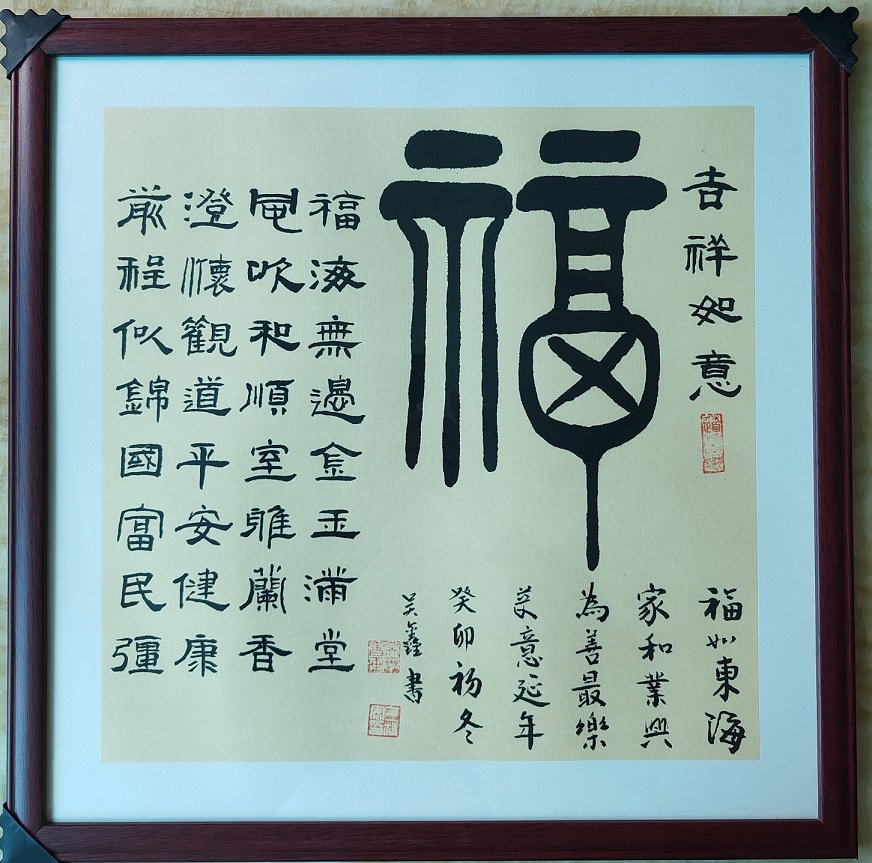 吉祥如意
福
福如東海
家和業興
為善最樂
美意延年
癸卯初冬
吴鑫書
福海無邊金玉滿堂
風吹和順室雅蘭香
澄懷觀道平安健康
前程似錦國富民彊